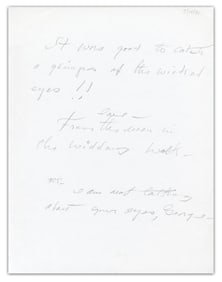 It was good to catch
a glimpse of the wicked
eyes !!
Love —
From the man in
the widdows walk —
P.S. we are not talking
about your eyes, George —